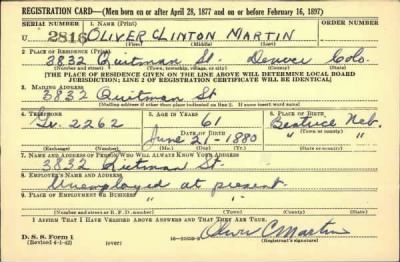 REGISTRATION CARD—(Men born on or after April 28, 1877 and on or before February 16, 1897)
SERIAL NUMBER 1. NAME (Print) ORDER NUMBER
U 2816 OLIVER CLINTON MARTIN
(First) (Middle) (Last)
2. PLACE OF RESIDENCE (Print)
3832 Quitman St. Denver Colo.
(Number and street) (Town, township, village, or city) (County) (State)
[THE PLACE OF RESIDENCE GIVEN ON THE LINE ABOVE WILL DETERMINE LOCAL BOARD
JURISDICTION; LINE 2 OF REGISTRATION CERTIFICATE WILL BE IDENTICAL]
3. MAILING ADDRESS
3832 Quitman St
[Mailing address if other than place indicated on line 2. If same insert word same]
4. TELEPHONE 5. AGE IN YEARS 6. PLACE OF BIRTH
2262 61 Beatrice
DATE OF BIRTH (Town or county)
June 21-1880 Neb.
(Exchange) (Number) (Mo.) (Day) (Yr.) (State or country)
7. NAME AND ADDRESS OF PERSON WHO WILL ALWAYS KNOW YOUR ADDRESS
3832 Quitman St.
8. EMPLOYER'S NAME AND ADDRESS
Unemployed at present.
9. PLACE OF EMPLOYMENT OR BUSINESS
" "
(Number and street or R. F. D. number) (Town) (County) (State)
I AFFIRM THAT I HAVE VERIFIED ABOVE ANSWERS AND THAT THEY ARE TRUE.
D. S. S. Form 1
(Revised 4-1-42) (over) Oliver C Martin
(Registrant's signature)